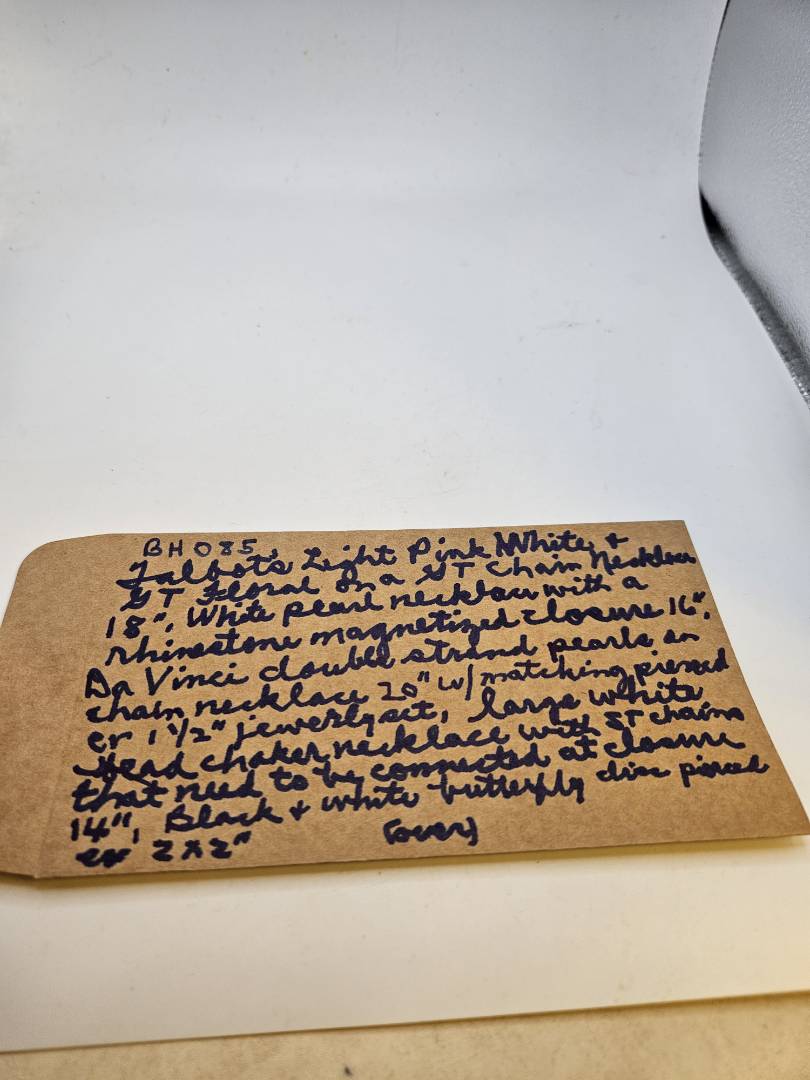 BH085,
Talbots Light Pink White, &
GT Floral on a GT Chain Necklace
18", White pearl necklace with a
rhinestone magnetized closure 16",
Da Vinci double strand pearls on
chain necklace 20" w/matching pierced
er 1 1/2" jewerly set, large white
bead choker necklace with ST chains
that need to be connected at closure
14", Black & white butterfly disc pierced
er 2x2" (over)